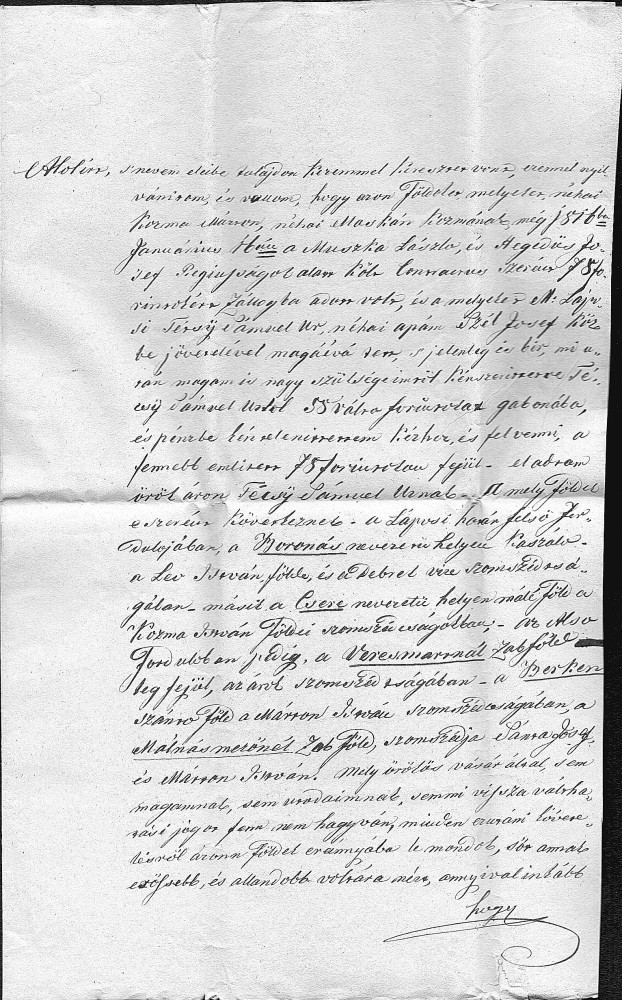 Alolírt, s nevem eleibe tulajdon kezemmel keresztet vont, ezennel nyil
vánitom, és vallom, hogy azon Földeket, melyeket, néhai
Kozma Márton, néhai Maskán Kozmának, még
Januárius a Muszka László, és Hegedüs Jo-
sef Regiusságok alatt költ Contractus szerént 75 fo-
rintokért Zálogba adott volt, és a melyeket M. Lápo-
si Técsÿ Sámuel Ur, néhai apám Szél Josef köz
be jövetelével magáévá tett, s jelenleg is bir, mi u-
tán magam is nagy szükségeimtöl kénszeríttetve Té-
csÿ Sámuel Urtol 55 válto forintokat gabonába,
és pénzbe kéntelenittettem kézhez, és fel venni, a
fennebb emlitett 75 forintokon fejül - el adtam
örök áron Técsÿ Sámuel Urnak - A mely Földek
e szerént következnek - a Láposi határ felsö For-
dulojában, a Boronás nevezetü helyen Kaszálo -
a Leo István földe, és a Debrek vize szomszédsá-
gában - másik a Csere nevezetü helyen málé Föld a
Kozma István Földei szomszédságokban, - az Also
Forduloban pedig, a Veresmartnál Zabföld
leg fejül, az árok szomszédságában - a Berken
szánto Föld a Márton István szomszédságában, a
Málnás mezönél Zab Föld, szomszédja Sánta Josef,
és Márton István. Mely örökös vásár által, sem
magamnak, sem utodaimnak, semmi vissza váltha-
tási jogot fenn nem hagyván, minden ezutáni követe-
lésröl azonn Földek eránnyába le mondok, söt annak
erössebb, és állandobb voltára nézt, annyival inkább
hogy